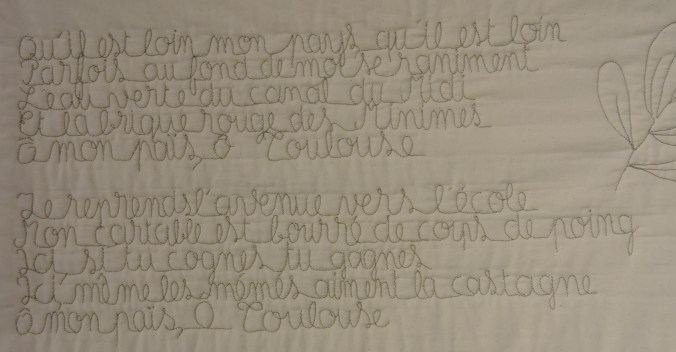 Qu'il est loin mon pays, qu'il est loin
Parfois au fond de moi se raniment
L'eau verte du canal du Midi
Et la brique rouge des Minimes
Ô mon païs, Ô Toulouse
Je reprends l'avenue vers l'école
Mon cartable est bourré de coups de poing
Ici, si tu cognes tu gagnes
Ici, même les mémés aiment la castagne
Ô mon païs, Ô Toulouse